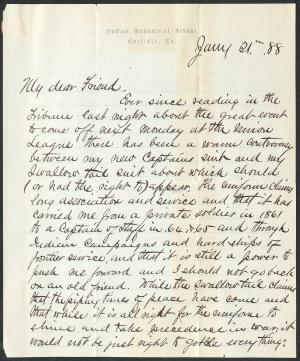 Indian Industrial School
Carlisle, Pa.
Jany 21st 88
My dear Friend.
Ever since reading in the
Tribune last night about the great event
to come off next Monday at the Union
League there has been a warm controversy
between my new Captains suit and my
Swallow tail suit about which should
(or had the right to) appear. The uniform claims
long association and service and that it has
carried me from a private soldier in 1861
to a Captain & Staff in 64 & 65 and through
Indian Campaigns and hardships of
frontier service, and that it is still a power to
push me forward and I should not go back
on an old friend. While the swallow tail claims
that the piping times of peace have come and
that while it is all right for the uniform to
shine and take precedence in war, it
would not be just right to gobble everything: